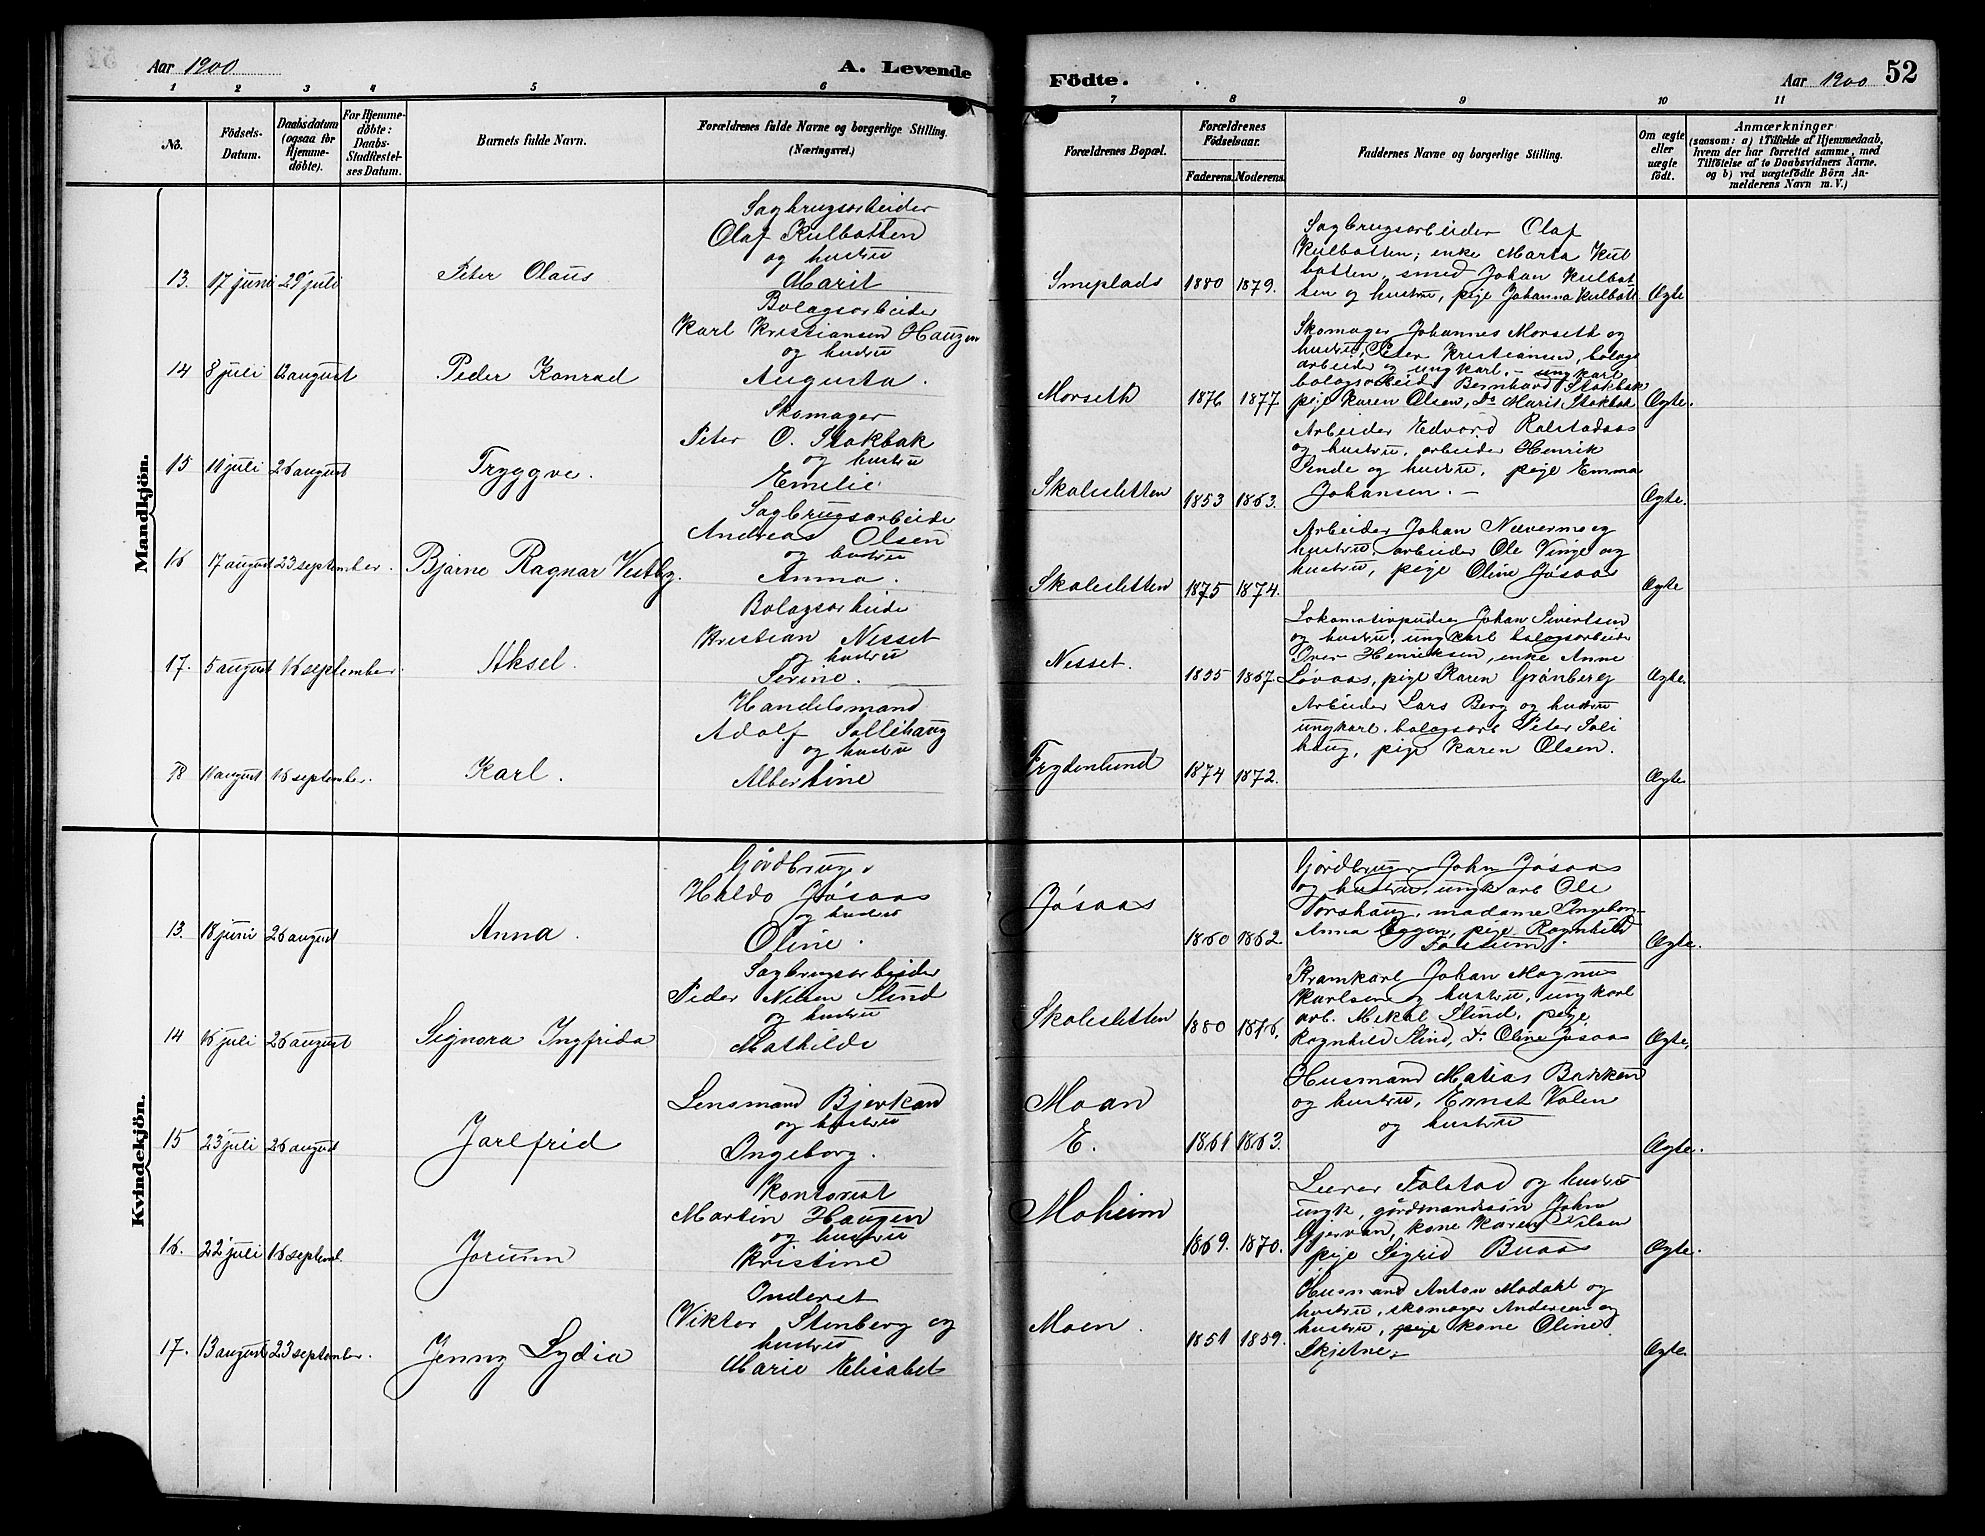 Aar 1900
A. Levende
Födte.
Aar 1900
52
1 2 3 4 5 6 7 8 9 10 11
No.
Födsels-
Datum.
Daabsdatum
(ogsaa for
Hjemme-
döbte).
For Hjemme-
döbte:
Daabs-
Stadfestel-
ses Datum.
Barnets fulde Navn.
Forældrenes fulde Navne og borgerlige Stilling.
(Næringsvei.)
Forældrenes Bopæl.
Forældrenes
Födselsaar.
Faderens. Moderens.
Faddernes Navne og borgerlige Stilling.
Om ægte
eller
uægte
födt.
Anmærkninger
(saasom: a) i Tilfælde af Hjemmedaab,
hvem der har forrettet samme, med
Tilföielse af to Daabsvidners Navne.
og b) ved uægtefödte Börn An-
melderens Navn m. V.)
Mandkjön.
13. 17 juni 29 juli
Peter Olaus
Sagbrugsarbeider
Olaf Kulbotten
og hustru
Marit
Smeplads
1880 1879.
Sagbrugsarbeider Olaf
Kulbotten, enke Marta Kul
botten, smed Johan Kulbot
ten og hustru, pige Johanna Kulbott
Ægte
14 8 juli 12 august
Peder Konrad
Bolagsarbeider
Karl Kristiansen Haugen
og hustru
Augusta.
Morseth
1876 1877
Skomager Johannes Morseth og
hustru, Peter Kristiansen, bolags
arbeider og ungkarl. - ungkarl
bolagsarbeide Bernhard Stokbak
pige Karen Olsen, Do Marit Stokbak
Ægte.
15 11 juli 26 august
Tryggve.
Skomager
Peter O. Stokbak
og hustru
Emelie
Skoleslitten
1853 1863.
Arbeider Edvard Rolstadaas
og hustru, arbeider Henrik
Sende og hustru, pige Emma
Johansen. -
Ægte.
16 17 august 23 september.
Bjarne Ragnar Vestby.
Sagbrugsarbeide
Andreas Olsen
og hustru
Anna.
Skoleslitten
1875 1874.
Arbeider Johan Nævermo og
hustru, arbeider Ole Vinge og
hustru, pige Oline Jøsaas
Ægte
17. 5 august 16 september.
Aksel.
Bolagsarbeide
Kristian Nesset
og hustru
Serine.
Nesset.
1855 1867.
Lokomotivpudser Johan Sivertsen
og hustru, ungkarl bolagsarbeide
Over Henriksen, enke Anne
Lövaas, pige Karen Grønberg
Ægte.
18 11 august 16 september.
Karl.
Handelsmand
Adolf Sollihaug
og hustru
Albertine
Frydenlund
1874 1872.
Arbeider Lars Berg og hustru
ungkarl. bolagsarb Peter Soli
haug, pige Karen Olsen.
Ægte
Kvindekjön.
13. 18 juni 26 august
Anna.
Gårdbruger
Haldo Jøsaas
og hustru
Oline.
Jøsaas
1860 1862
Gårdbruger John Jøsaas
og hustru, ungkarl Ole
Torshaug, madame Ingeborg
Anna Eggen, pige Ragnhild
Ægte.
14 16 juli 26 august
Signora Ingfrida
Sagbrugsarbeider
Peder Nilsen Slind
og hustru
Mathilde
Skoleslitten
1880 1876,
Kramkarl Johan Magnus
Karlsen og hustru, ungkarl
arb. Mekal Slind, pige
Ragnhild Slind, do Oline Jøsaas
Ægte,
15 23 juli 26 august
Jarlfrid
Lensmand Bjerkan
og hustru
Ingeborg.
Moan
E.
1861 1863.
Husmand Matias Bakken
og hustru, Ernst Valen
og hustru
Ægte.
16. 22 juli 16 septembl.
Jorunn
Kontorist
Martin Haugen
og hustru
Kristine
Moheim
1869. 1870.
Lærer Falstad og hustru
ungk, gårdmandssøn John
Gjervan, kone Karen Nilsen
pige Sigrid Buaas
Ægte.
17. 13 august 23 september.
Jenny Lydia
Onderst
Viktor Stenberg og
hustru
Marie Elisabet
Moen.
1851 1859.
Husmand Anton Modahl og
hustru, skomager Andersen og
hustru, pige kone Oline
Skjelne.
Ægte.